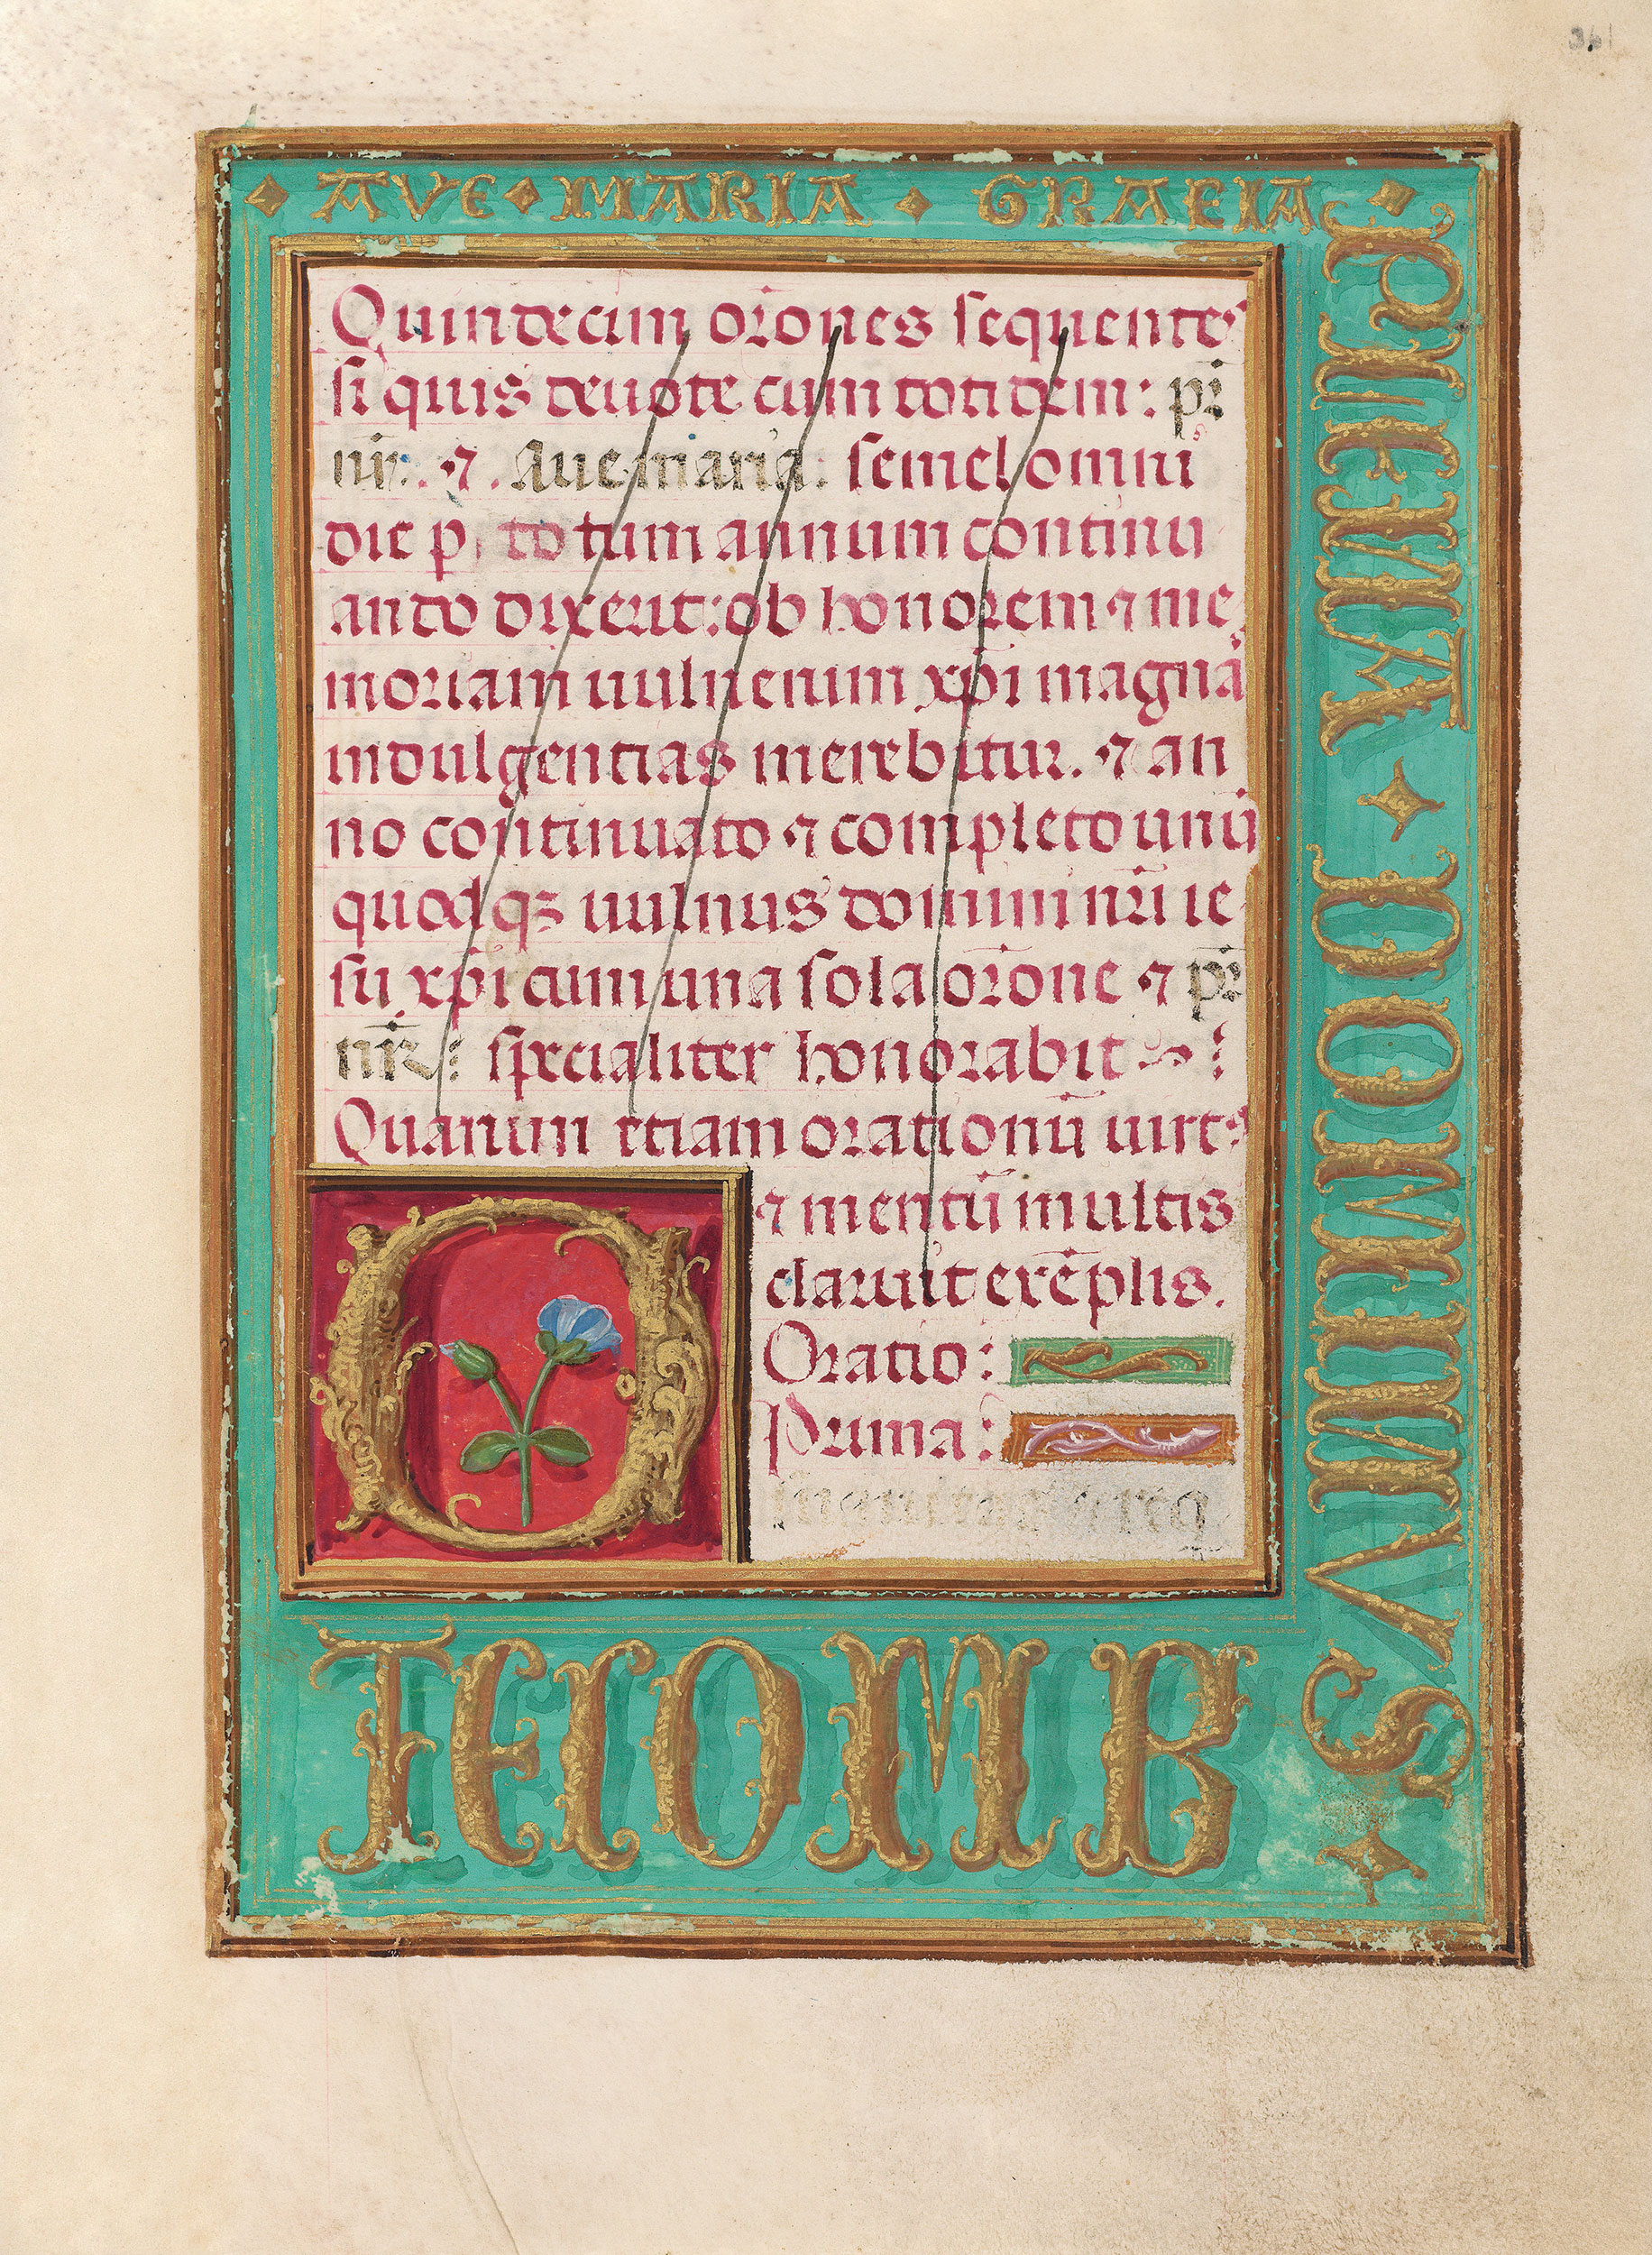 361
AVE MARIA GRAEIA
PLENA DOMINVS
TECOMB
Quindecim or̄ones sequentes
si quis deuote cum totidem: pr̄
nr̄: ⁊. Aue maria: semel omni
die p to tum annum continu
ando dixerit: ob honorem ⁊ me
moriam uulnerum xp̄i magnā
indulgentias merebitur. ⁊ an
no continuato ⁊ completo unū
quodqꝫ uulnus domini nr̄i ie
su xp̄i cum una sola or̄one ⁊ pr̄
nr̄: specialiter honorabit :
Quarum etiam orationū uirt⁹
⁊ meritū multis
claruit exēplis.
Oratio:
Prima: